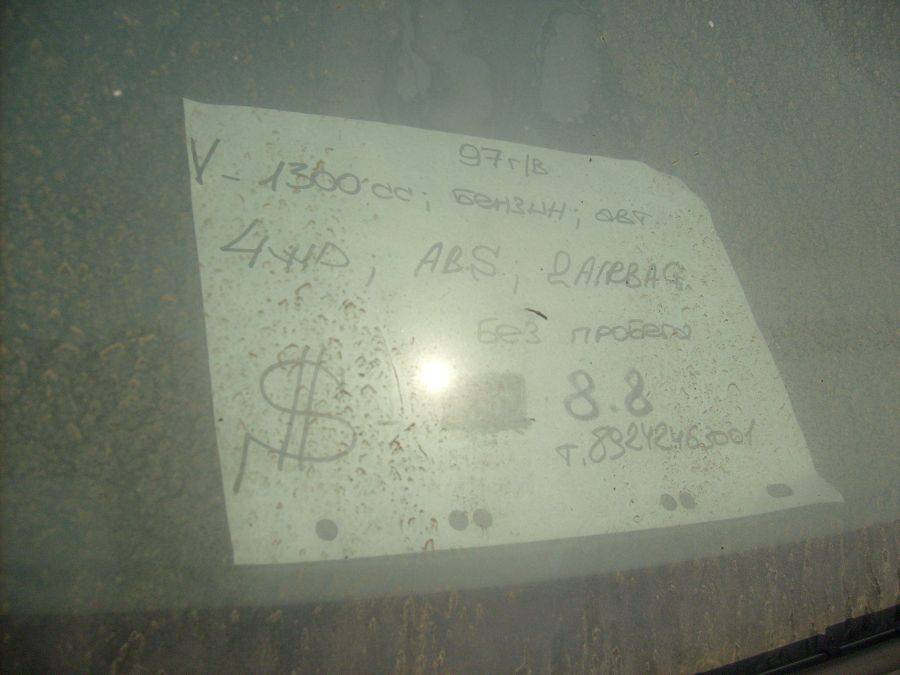 97 г/в
V - 1300 сс; бензин; авт
4WD; ABS; 2 AIRBAG.
без пробега
$ - 8.8
т. 89242463001